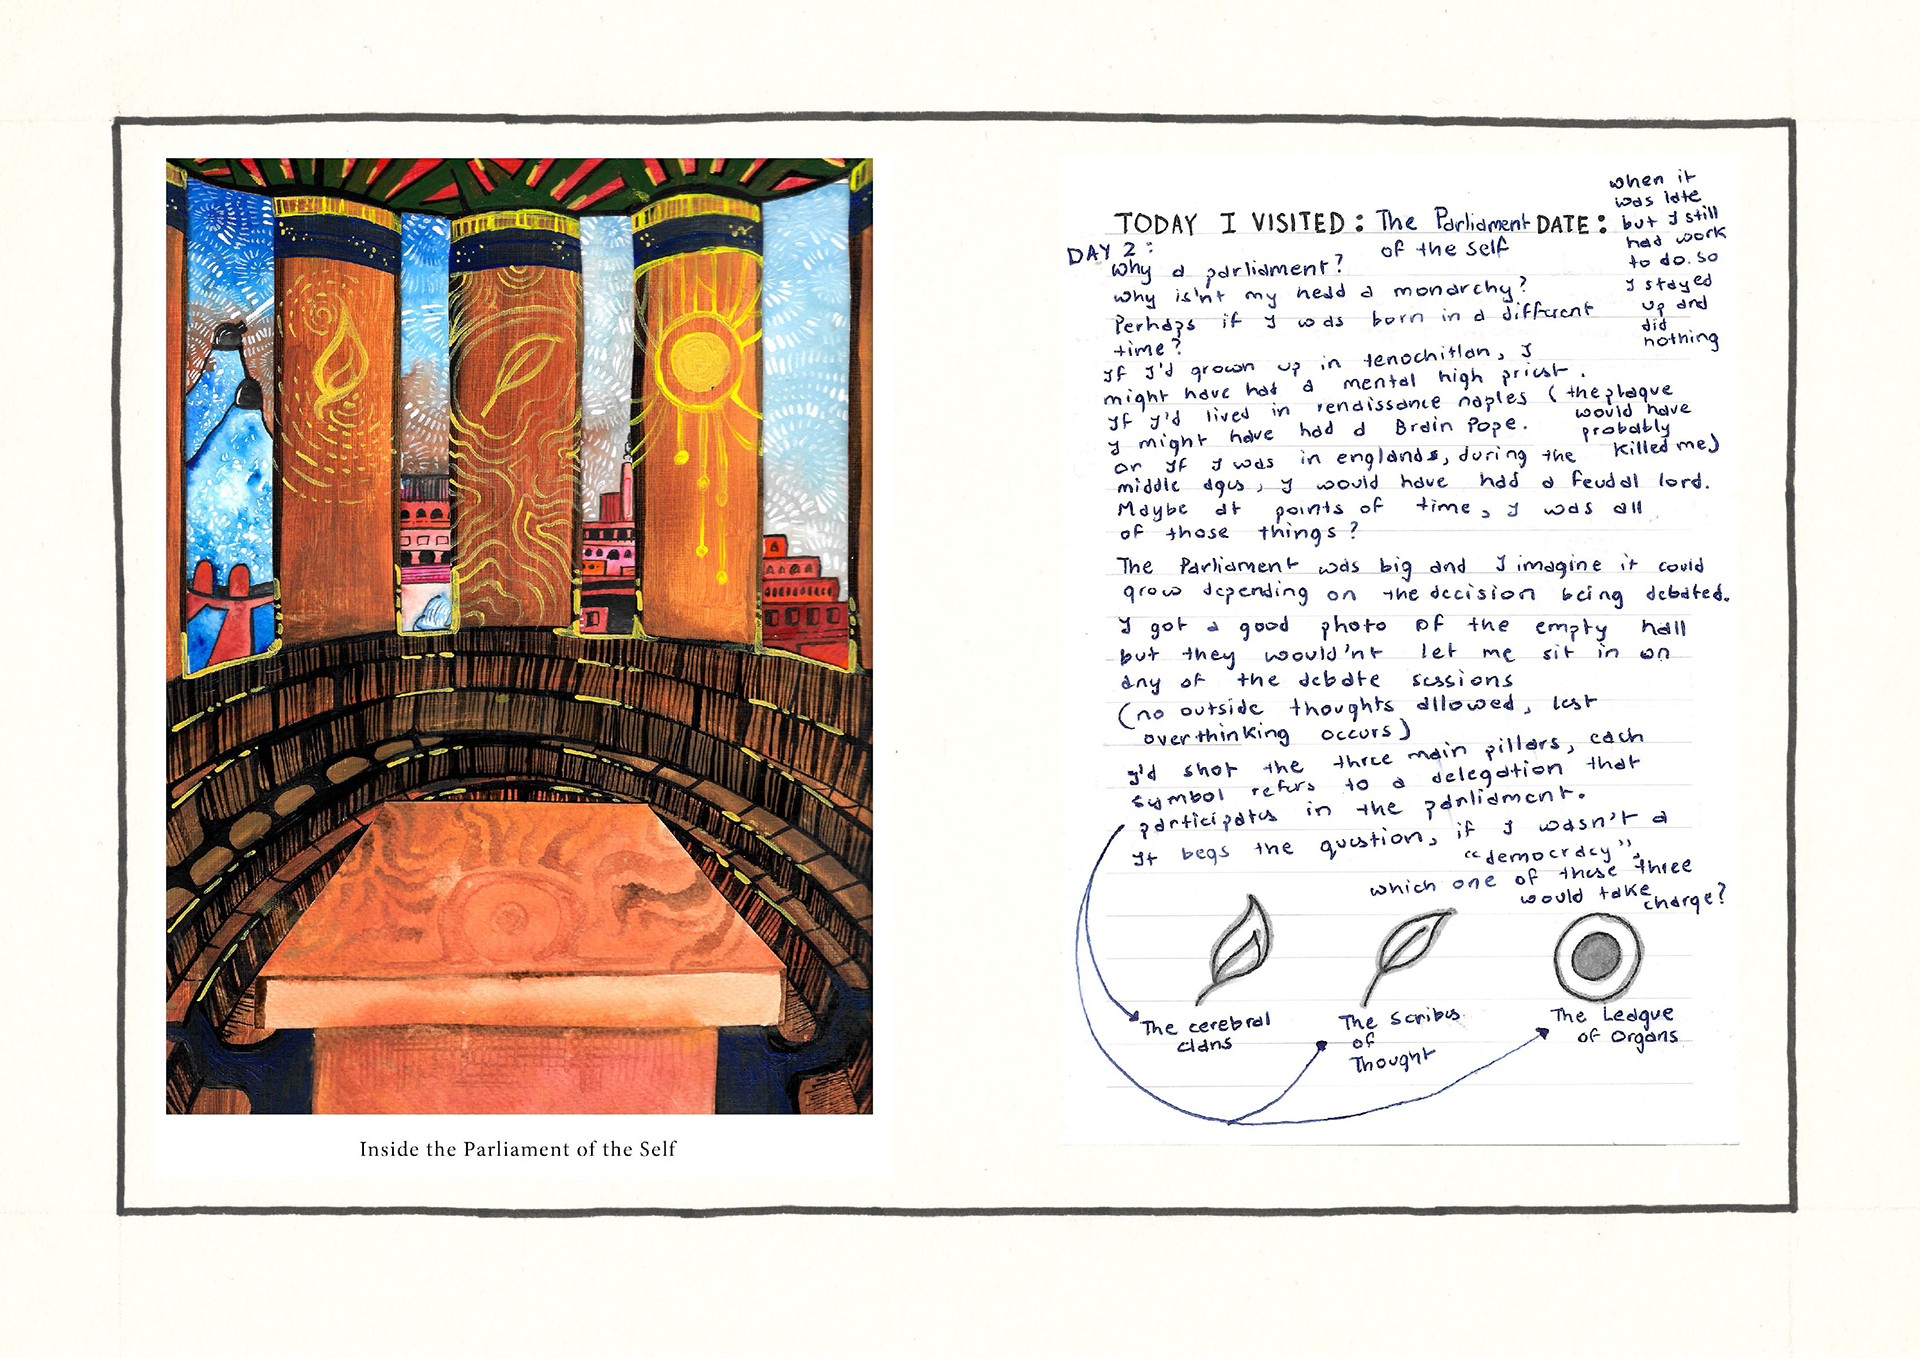 Inside the Parliament of the Self
TODAY I VISITED: The Parliament
of the self
DATE:
when it
was late
but I still
had work
to do. so
I stayed
up and
did
nothing
DAY 2:
Why a parliament?
why is'nt my head a monarchy?
Perhaps if I was born in a different
time?
If I'd grown up in tenochitlan, I
might have had a mental high priest.
If I'd lived in renaissance naples (the plague
would have
probably
killed me)
I might have had a Brain Pope.
or If I was in englands, during the
middle ages, I would have had a feudal lord.
Maybe at points of time, I was all
of those things?
The Parliament was big and I imagine it could
grow depending on the decision being debated.
I got a good photo of the empty hall
but they would'nt let me sit in on
any of the debate sessions
(no outside thoughts allowed, lest
overthinking occurs)
I'd shot the three main pillars, each
symbol refers to a delegation that
participates in the parliament.
It begs the question, if I wasn't a
"democracy",
which one of these three
would take charge?
The cerebral
clans
The Scribes
of
Thought
The League
of Organs